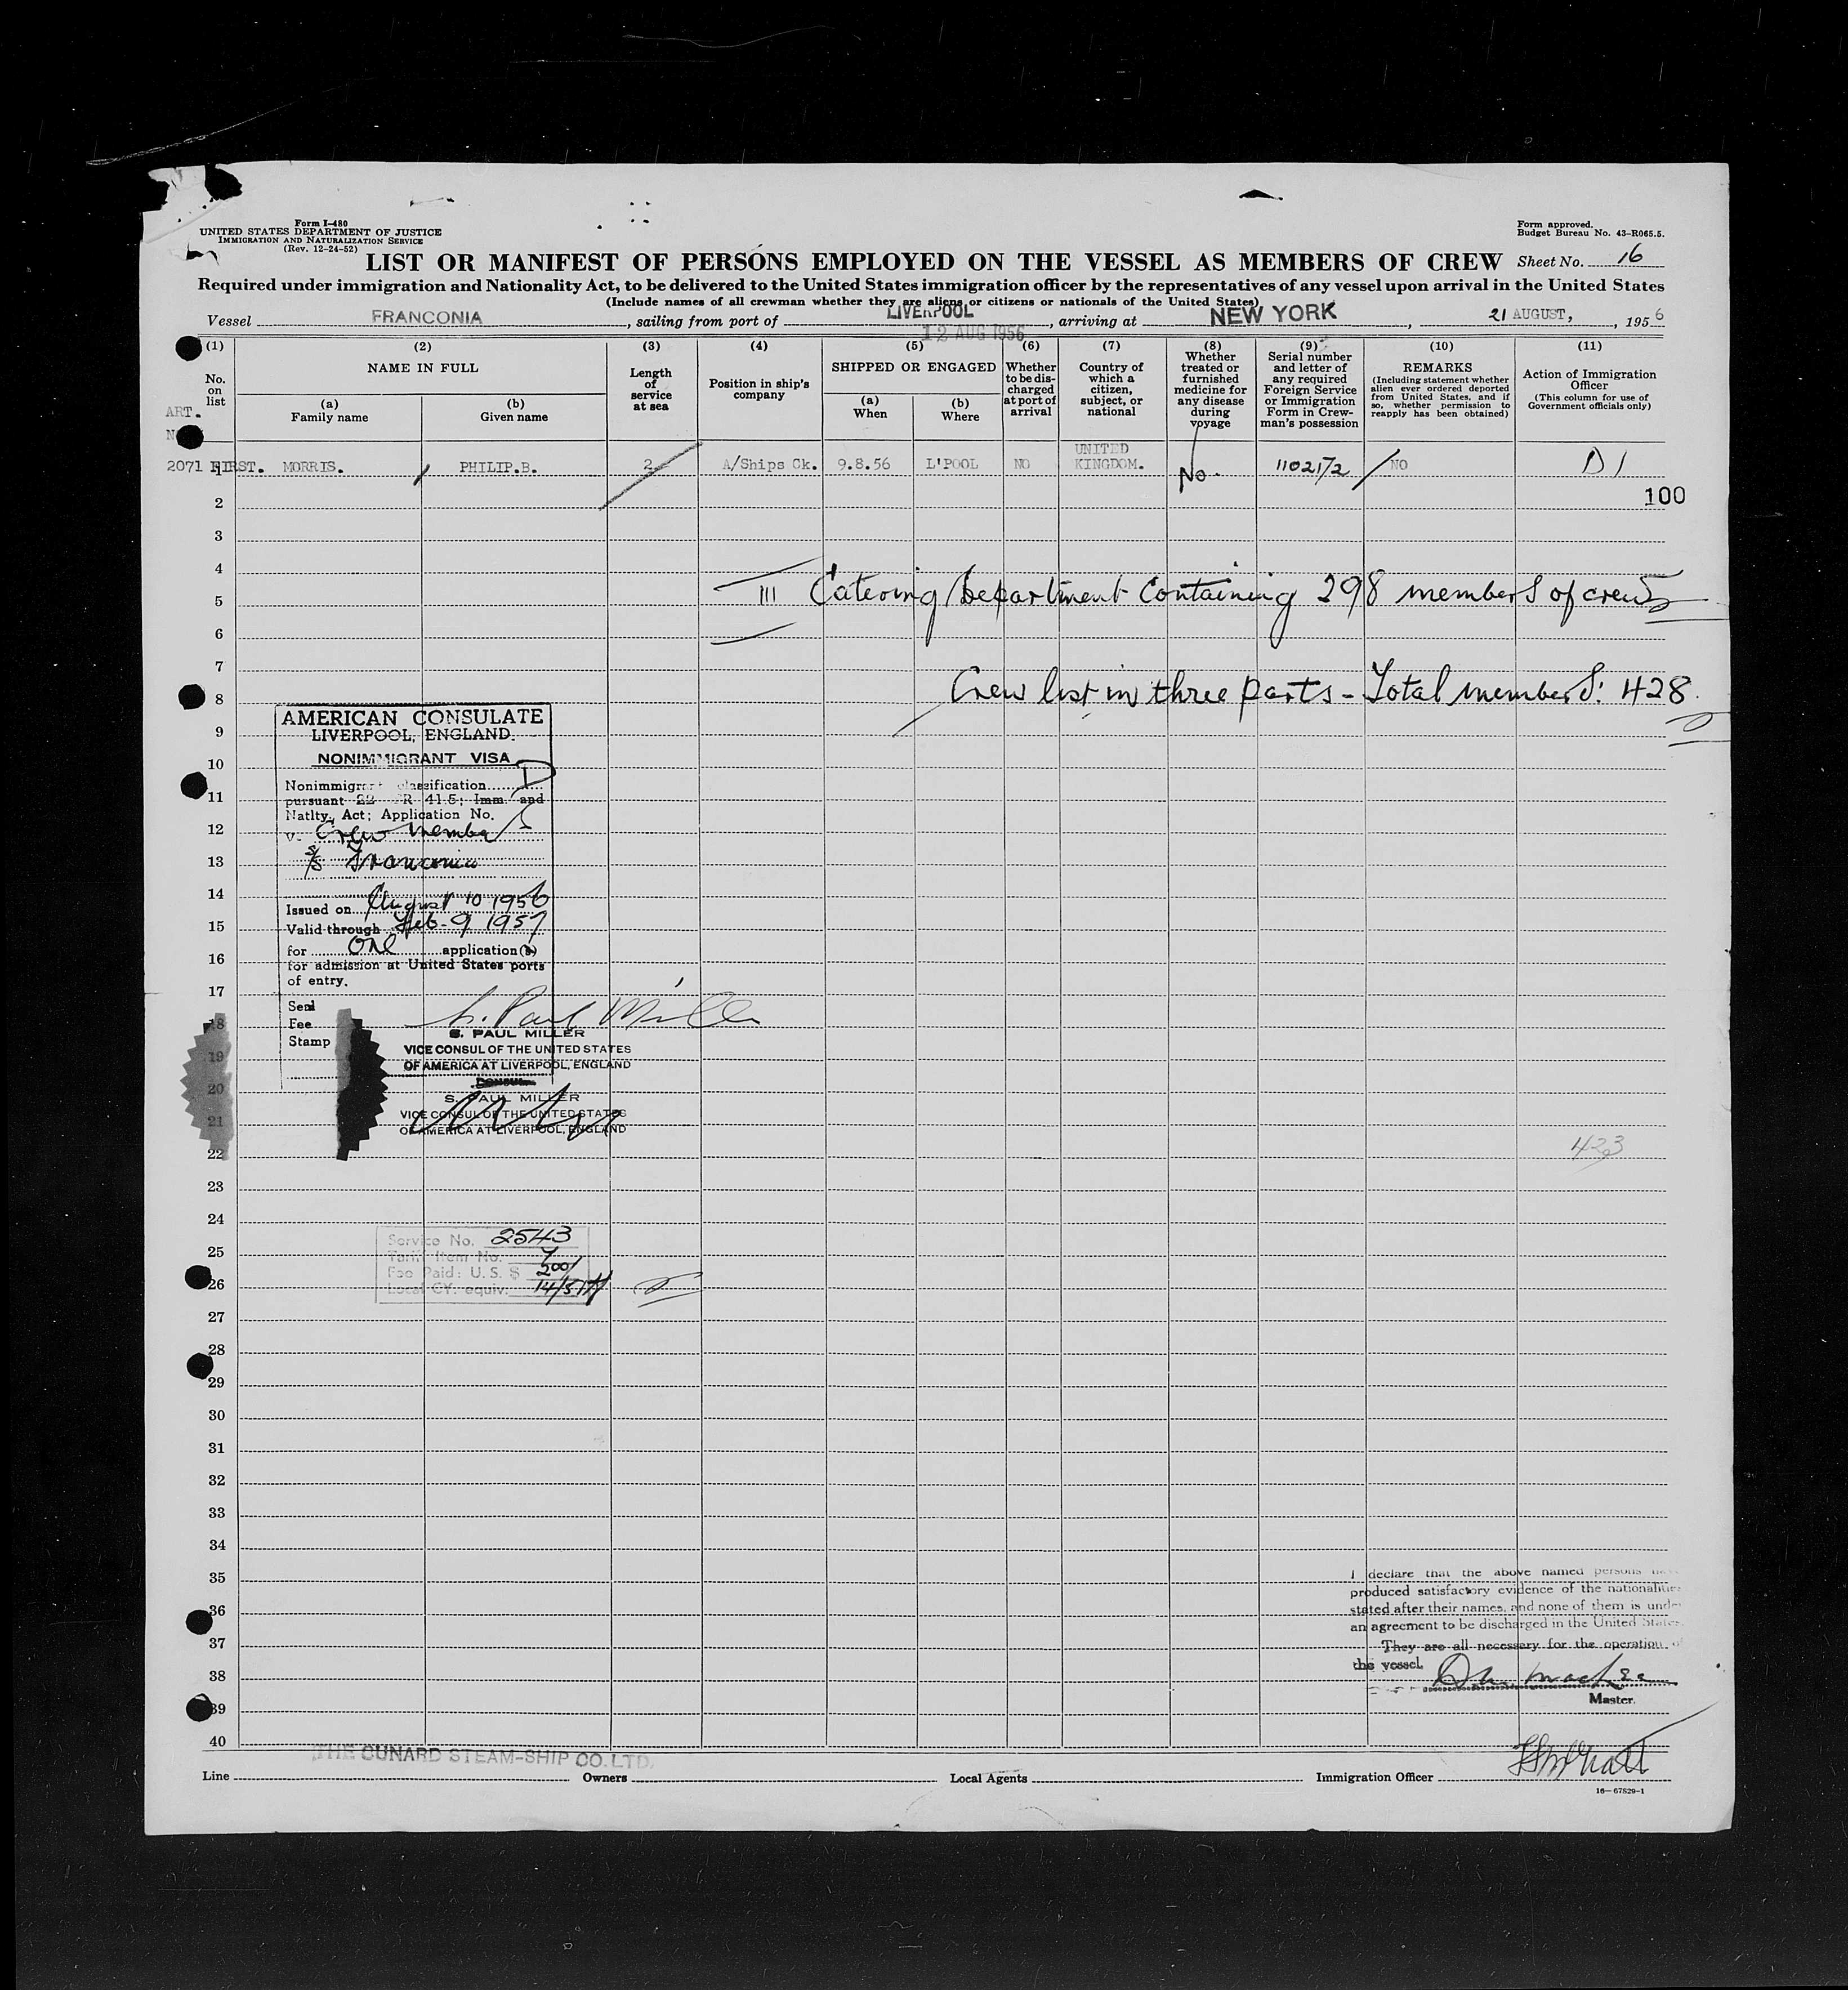 Form I-480
UNITED STATES DEPARTMENT OF JUSTICE
IMMIGRATION AND NATURALIZATION SERVICE
(Rev. 12-24-52)
Form approved.
Budget Bureau No. 43-R065.5.
LIST OR MANIFEST OF PERSONS EMPLOYED ON THE VESSEL AS MEMBERS OF CREW
Sheet No. 16
Required under immigration and Nationality Act, to be delivered to the United States immigration officer by the representatives of any vessel upon arrival in the United States
(Include names of all crewman whether they are aliens or citizens or nationals of the United States)
Vessel FRANCONIA, sailing from port of LIVERPOOL, arriving at NEW YORK, 21 AUGUST, 1956
12 AUG 1956
(1) (2) (3) (4) (5) (6) (7) (8) (9) (10) (11)
No. on list
NAME IN FULL
(a) Family name
(b) Given name
Length of service at sea
Position in ship's company
SHIPPED OR ENGAGED
(a) When
(b) Where
Whether to be discharged at port of arrival
Country of which a citizen, subject, or national
Whether treated or furnished medicine for any disease during voyage
Serial number and letter of any required Foreign Service or Immigration Form in Crewman's possession
REMARKS
(Including statement whether alien ever ordered deported from United States, and if so, whether permission to reapply has been obtained)
Action of Immigration Officer
(This column for use of Government officials only)
ART.
2071 FIRST. MORRIS. PHILIP.B. 2 A/Ships Ck. 9.8.56 L'POOL NO UNITED KINGDOM. No. 1102172 NO D1
1
2
100
3
4
III Catering Department Containing 298 members of crew
5
6
7
Crew list in three parts - Total members: 428.
8
9
10
11
12
13
14
15
16
17
18
19
20
21
22
23
24
25
26
27
28
29
30
31
32
33
34
35
36
37
38
39
40
AMERICAN CONSULATE
LIVERPOOL, ENGLAND.
NONIMMIGRANT VISA
Nonimmigrant classification D
pursuant 22 41.5; Imm. and
Natlty. Act; Application No.
V- Crew Member
S/S Franconia
Issued on August 10 1956
Valid through Feb-9 1957
for one application(s)
for admission at United States ports
of entry.
Seal
Fee
Stamp
S. Paul Miller
S. PAUL MILLER
VICE CONSUL OF THE UNITED STATES
OF AMERICA AT LIVERPOOL, ENGLAND
CONSUL
S. PAUL MILLER
VICE CONSUL OF THE UNITED STATES
OF AMERICA AT LIVERPOOL, ENGLAND
423
Service No. 2543
Tariff Item No. 7
Fee Paid: U.S. $ 200
Local CY. equiv. 14/5
I declare that the above named persons
produced satisfactory evidence of the nationalities
stated after their names, and none of them is under
an agreement to be discharged in the United States.
They are all necessary for the operation of
the vessel.
Master.
THE CUNARD STEAM-SHIP CO. LTD.
Line Owners Local Agents Immigration Officer
16—67829-1